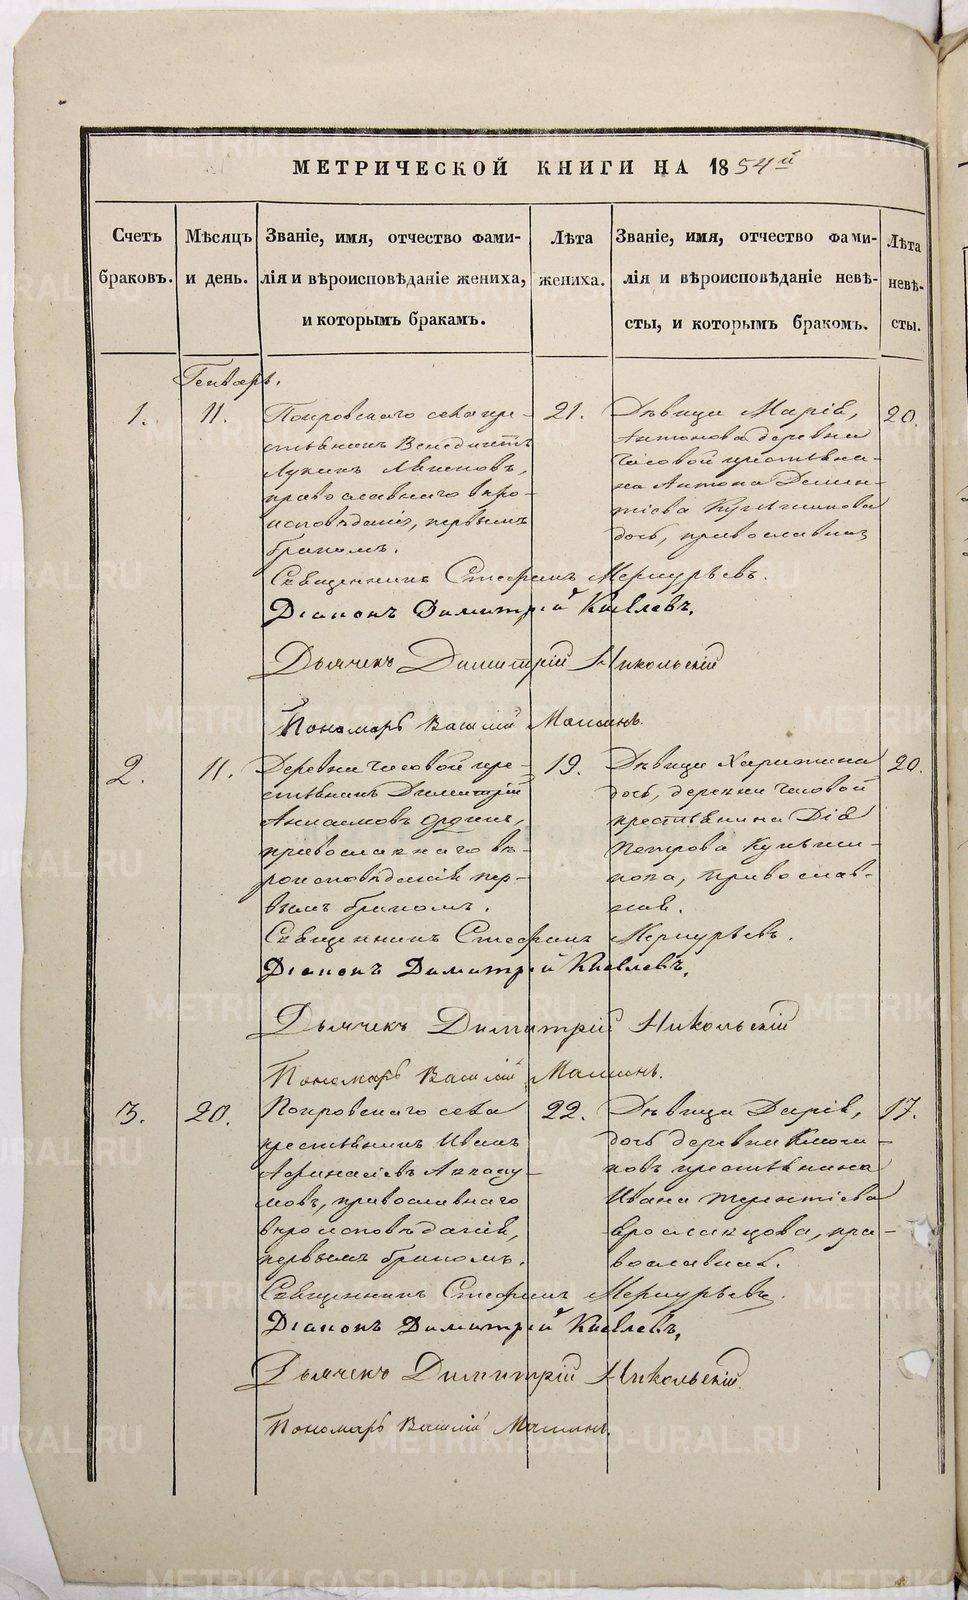 МЕТРИЧЕСКОЙ КНИГИ НА 1854й
Счетъ браковъ.
Мѣсяцъ и день.
Званіе, имя, отчество фами-
лія и вѣроисповѣданіе жениха,
и которымъ бракамъ.
Лѣта
жениха.
Званіе, имя, отчество фами-
лія и вѣроисповѣданіе невѣ-
сты, и которымъ бракомъ.
Лѣта
невѣ-
сты.
Генварь.
1.
11.
Покровскаго села кре-
стьянинъ Венедиктъ
Лукинъ
православнаго вѣро-
исповѣданія, первымъ
бракомъ.
21.
Дѣвица Марія,
Антонова деревни
Часовой крестьяни-
на Антона Демен-
тіева
дочь, православная
20.
Священникъ Стефанъ Меркурьевъ.
Діаконъ Димитрій Киселевъ.
Дьячекъ Димитрій Никольскій
Пономарь Василій Маминъ.
2.
11.
Деревни Часовой кре-
стьянинъ Димитрій
православнаго вѣ-
роисповѣданія пер-
вымъ бракомъ.
19.
Дѣвица Харитина
дочь, деревни Часовой
крестьянина
Петрова
православ-
ная.
20.
Священникъ Стефанъ Меркурьевъ.
Діаконъ Димитрій Киселевъ.
Дьячекъ Димитрій Никольскій
Пономарь Василій Маминъ.
3.
20.
Покровскаго села
крестьянинъ Иванъ
Афанасіевъ Авваку-
мовъ, православнаго
вѣроисповѣданія,
первымъ бракомъ.
22.
Дѣвица Дарія,
дочь деревни Ключи-
ковъ крестьянина
Ивана Терентіева
Ярославцова, пра-
вославная.
17.
Священникъ Стефанъ Меркурьевъ.
Діаконъ Димитрій Киселевъ.
Дьячекъ Димитрій Никольскій
Пономарь Василій Маминъ.
METRIKI.GASO-URAL.RU